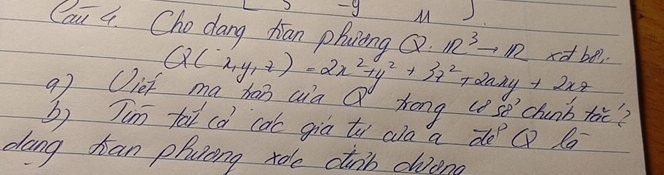 Câu 4. Cho dạng toàn phương Q: IR³ → IR xđ bởi:
Q(x,y,z) = 2x² + y² + 3z² + 2axy + 2xz
a) Viết ma trận của Q trong cơ sở chính tắc?
b) Tìm tất cả các giá trị của a để Q là
dạng toàn phương xác định dương